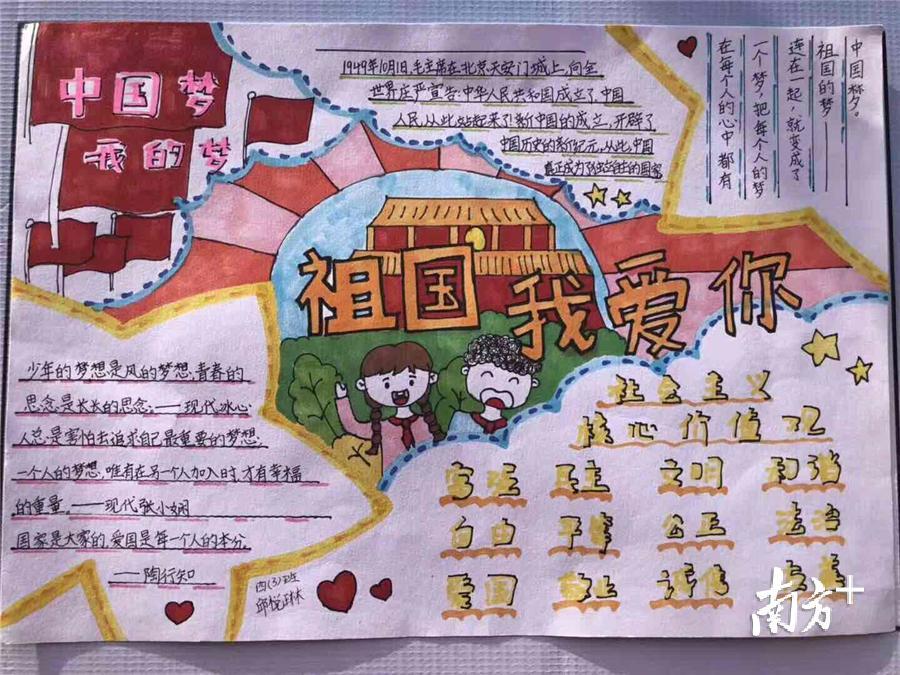 中国梦
我的梦
1949年10月1日,毛主席在北京天安门城上,向全
世界庄严宣告:中华人民共和国成立了,中国
人民,从此站起来了!新中国的成立,开辟了
中国历史的新纪元,从此,中国
真正成为独立自主的国家
中国梦。
祖国的梦——
连在一起,就变成了
一个梦,把每个人的梦
在每个人的心中都有
祖国我爱你
少年的梦想,是风的梦想,青春的
思念,是长长的思念:——现代冰心
人总是害怕去追求自己最重要的梦想.
一个人的梦想,唯有在另一个人加入时,才有幸福
的重量。——现代张小娴
国家是大家的,爱国是每一个人的本分.
——陶行知
四(3)班
社会主义
核心价值观
富强 民主 文明 和谐
自由 平等 公正 法治
爱国 敬业 诚信 友善
南方+